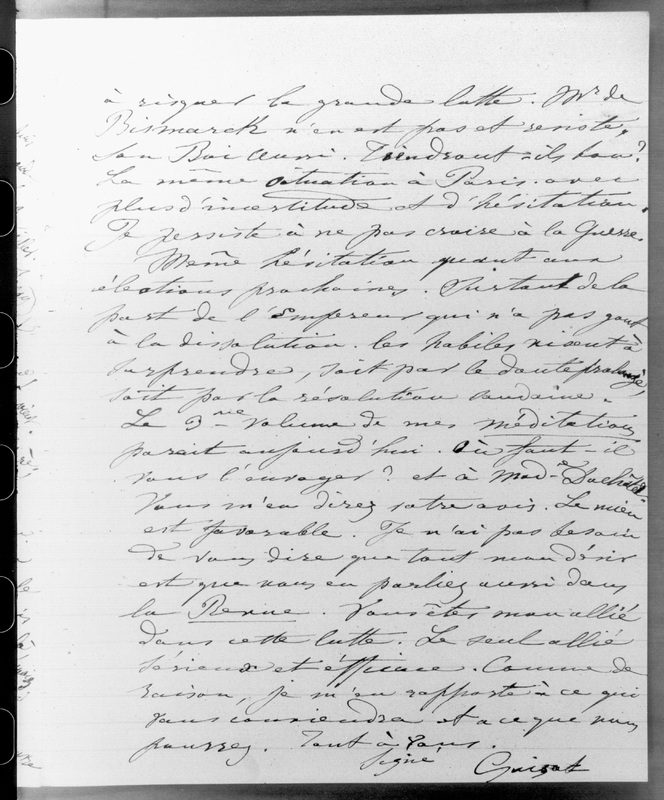 à risquer la grande lutte. Mr de
Bismarck n'en est pas et resiste,
son Roi aussi. Tiendront-ils bon?
La même situation à Paris. avec
plus d'incertitude et d'hésitation.
Je persiste à ne pas croire à la Guerre.
Même hésitation quant aux
élections prochaines. Surtout de la
part de l'Empereur qui n'a pas gout
à la dissolution. les habiles visent à
surprendre, soit par le doute prolongé,
soit par la résolution soudaine.
Le 3me volume de mes méditations
parait aujourd'hui. Où faut-il
vous l'envoyer? et à Made Duchatel
Vous m'en direz votre avis. Le mien
est favorable. Je n'ai pas besoin
de vous dire que tout mon désir
est que vous en parliez aussi dans
la Revue. Vous êtes mon allié
dans cette lutte. Le seul allié
sérieux et efficace. Comme de
raison, je m'en rapporte à ce qui
vous conviendra et a ce que vous
pourrez. Tout à vous.
Signé Guizot